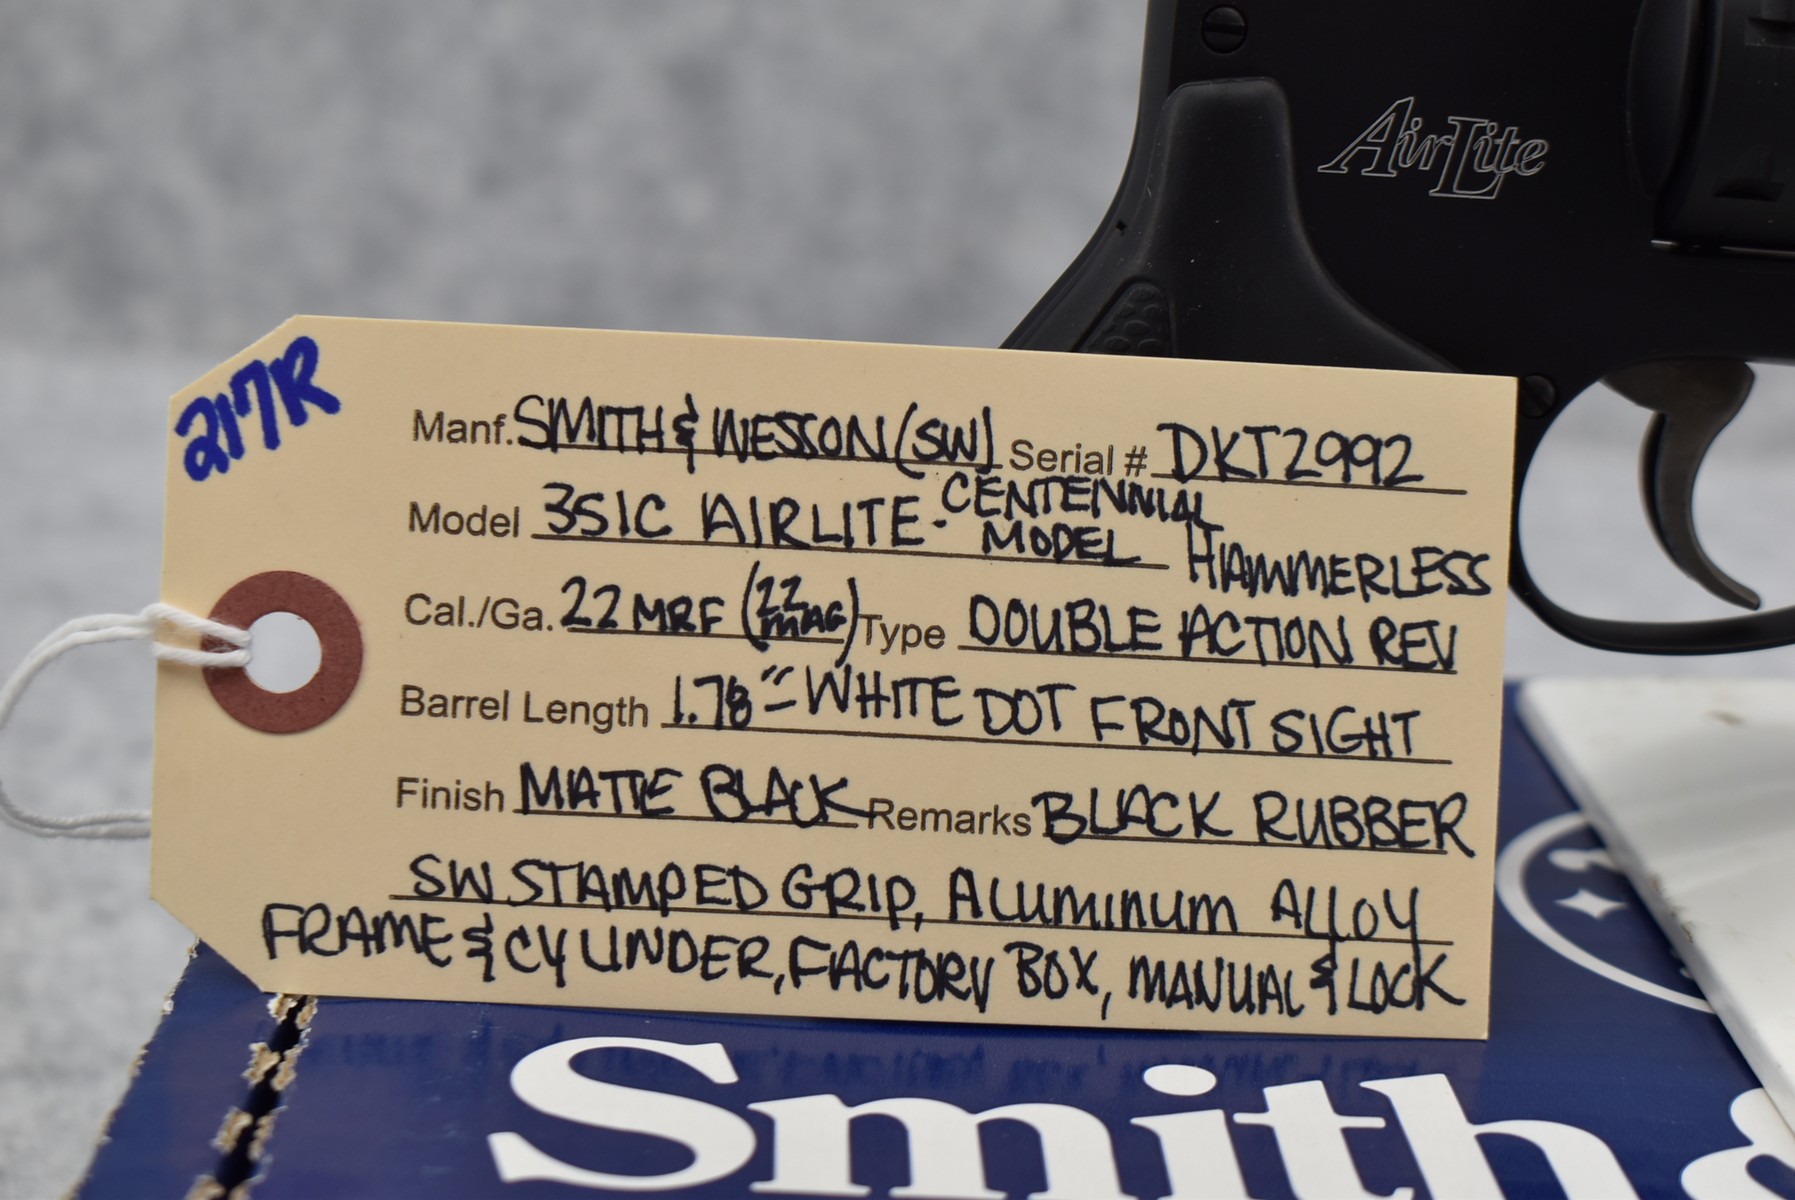 AirLite
217R
Manf. SMITH & WESSON (SW) Serial # DKT2992
Model 351C AIRLITE - CENTENNIAL MODEL HAMMERLESS
Cal./Ga. 22 MRF (22 MAG) Type DOUBLE ACTION REV
Barrel Length 1.78" - WHITE DOT FRONT SIGHT
Finish MATTE BLACK Remarks BLACK RUBBER
SW STAMPED GRIP, ALUMINUM ALLOY
FRAME & CYLINDER, FACTORY BOX, MANUAL & LOCK
Smith &